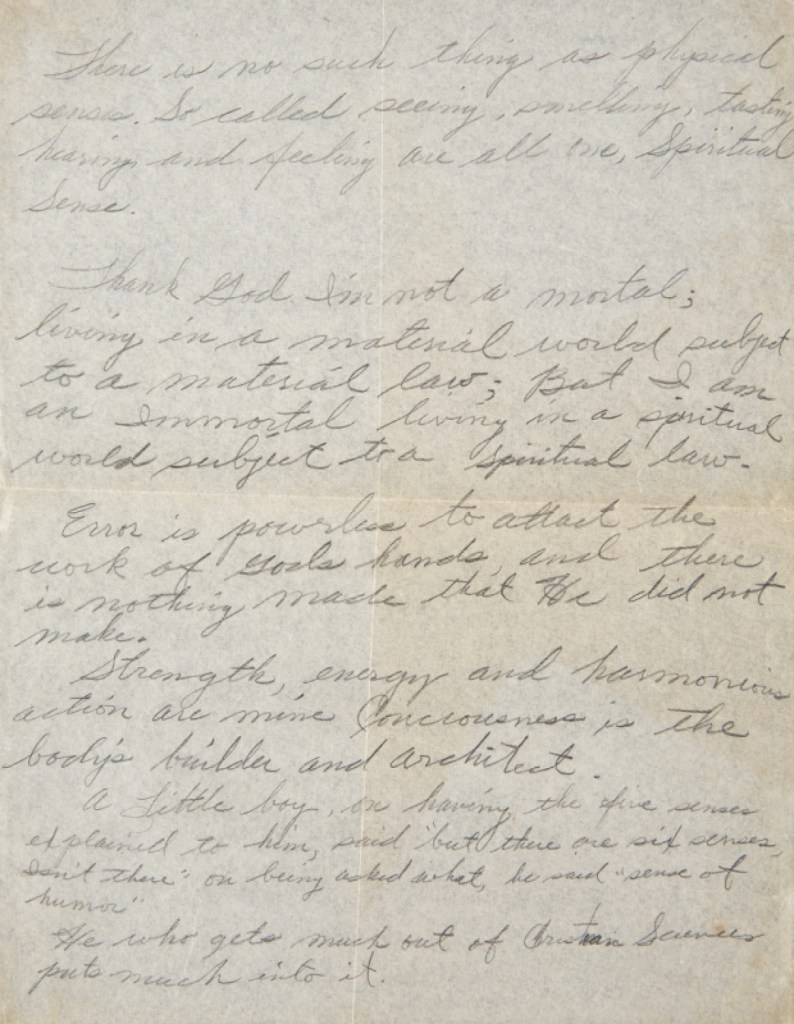 There is no such thing as physical
senses. So called seeing, smelling, tasting
hearing, and feeling are all one, Spiritual
Sense.
Thank God I'm not a mortal;
living in a material world subject
to a material law; But I am
an Immortal living in a spiritual
world subject to a spiritual law.
Error is powerless to attact the
work of Gods hands, and there
is nothing made that He did not
make.
Strength, energy and harmonious
action are mine Conciousness is the
body's builder and architect.
A Little boy, on having the five senses
explained to him, said "but there are six senses,
Isn't there" on being asked what, he said "sense of
humor"
He who gets much out of Christian Sciences
puts much into it.